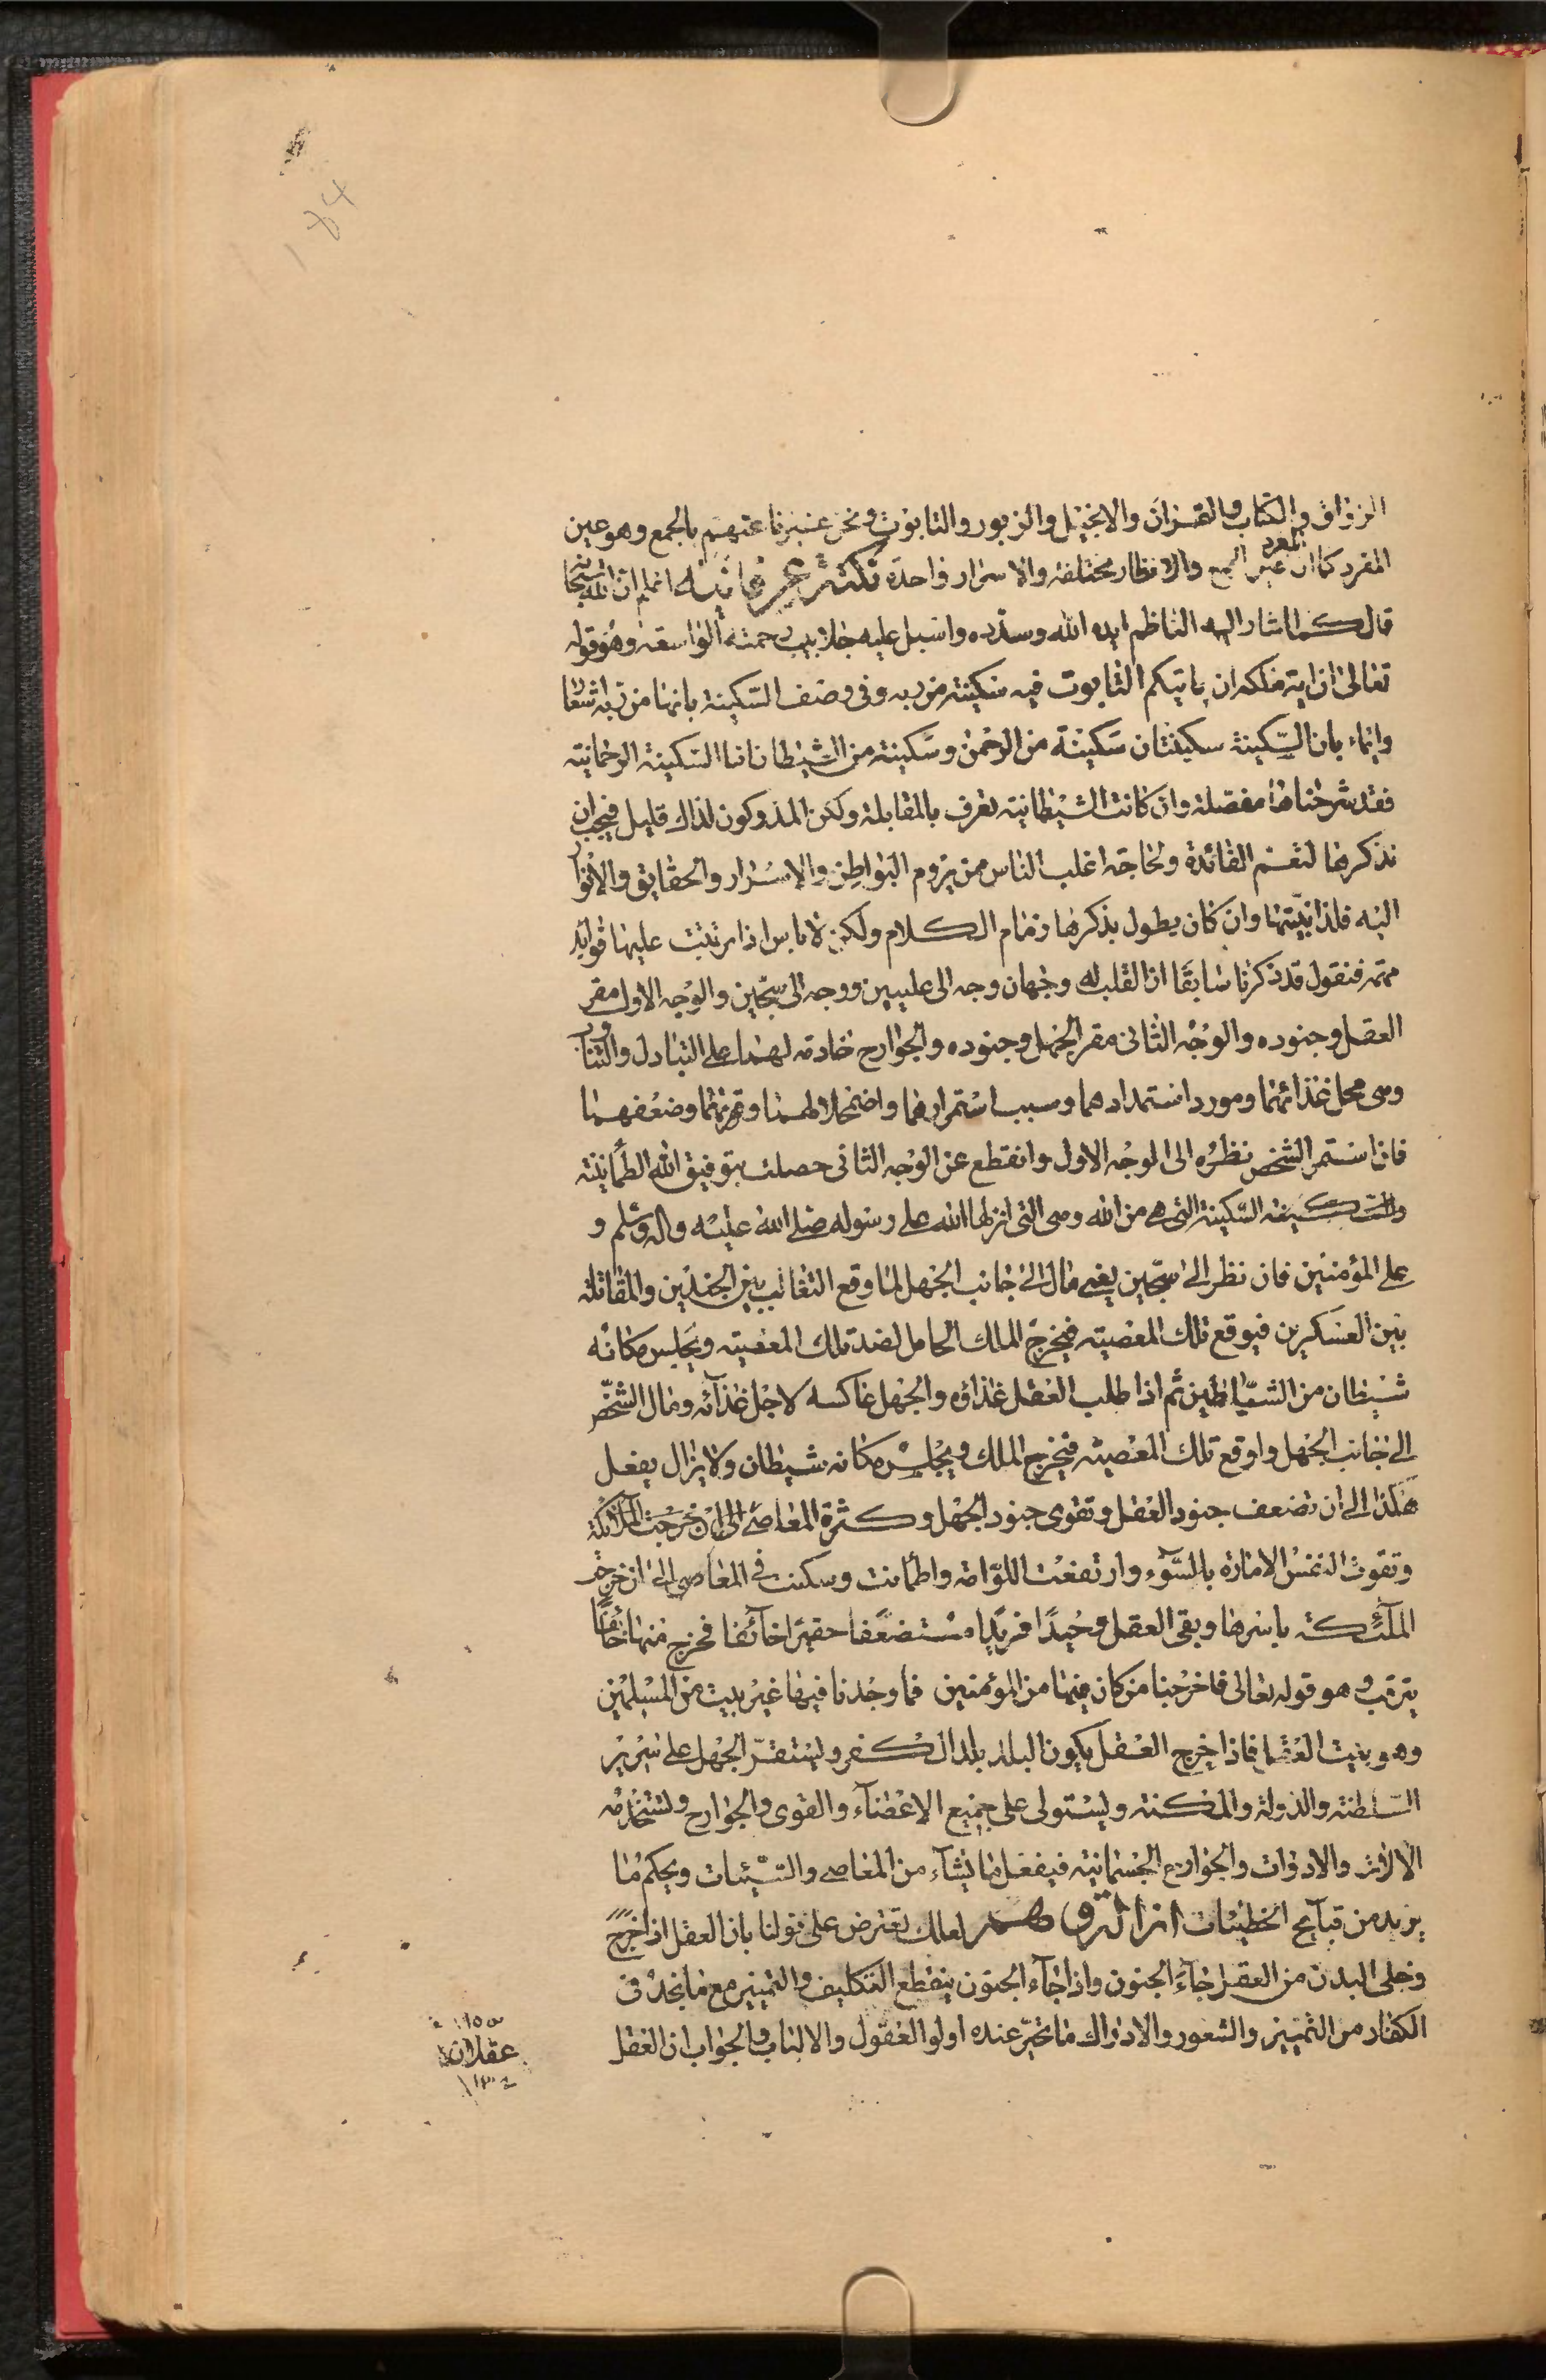 الرزاق والكتاب والقرآن والانجيل والزبور والتابوت ونحن عبرنا عنهم بالجمع وهو عين
المفرد كما ان المفرد عين الجمع والانظار مختلفة والاسرار واحدة نكتة عرفانية اعلم ان الله سبحانه
قال كما اشار اليه الناظم ايده الله وسدده واسبل عليه جلابيب رحمته الواسعة وهو قوله
تعالى ان اية ملكه ان ياتيكم التابوت فيه سكينة من ربه وفي وصف السكينة بانها من ربه اشعارا
وايماء بان السكينة سكينتان سكينة من الرحمن وسكينة من الشيطان اما السكينة الرحمانية
فقد شرحناها مفصلة وان كانت الشيطانية تعرف بالمقابلة ولكن المدركون لذلك قليل فيجب ان
نذكرها لتعم الفائدة ولحاجة اغلب الناس ممن يروم البواطن والاسرار والحقايق والانوار
اليه فلذا نبينها وان كان يطول بذكرها زمام الكلام ولكن لا باس اذا ترتبت عليها فوايد
مهمة فنقول قد ذكرنا سابقا ان القلب له وجهان وجه الى عليين ووجه الى سجين والوجه الاول مقر
العقل وجنوده والوجه الثاني مقر الجهل وجنوده والجوارح خادمة لهما على التبادل والتناوب
وهى محل غذائهما ومورد استمدادهما وسبب استمرارهما واضمحلالهما وقوتهما وضعفهما
فان استمر الشخص نظره الى الوجه الاول وانقطع عن الوجه الثاني حصلت بتوفيق الله الطمأنينة
والسكينة السكينة التي هى من الله وهى التي انزلها الله على رسوله صلى الله عليه واله وسلم و
على المؤمنين فان نظر الى سجين يعنى مال الى جانب الجهل لما وقع التغالب بين الجندين والمقاتلة
بين العسكرين فيوقع تلك المعصية فيخرج الملك الحامل لضد تلك المعصية ويجلس مكانه
شيطان من الشياطين ثم اذا طلب العقل غذاؤه والجهل عاكسه لاجل غذآئه ومال الشخص
الى جانب الجهل واوقع تلك المعصية فيخرج الملك ويجلس مكانه شيطان ولا يزال يفعل
هكذا الى ان تضعف جنود العقل وتقوى جنود الجهل وكثرة المعاصى الى ان خرجت الملائكة
وتقوت النفس الامارة بالسوء وارتفعت اللوامة واطمأنت وسكنت في المعاصى الى ان خرجت
الملآئكة باسرها وبقى العقل وحيدًا فريدًا مستضعفا حقيرا خآئفا فخرج منها خائفًا
يترقب وهو قوله تعالى فاخرجنا من كان فيها من المؤمنين فما وجدنا فيها غير بيت من المسلمين
وهو بيت العقل فاذا خرج العقل يكون البلد بلد الكفر ويستقر الجهل على سرير
السلطنة والدولة والمكنة ويستولى على جميع الاعضآء والقوى والجوارح وتستخدمه
الالات والادوات والجوارح الجسمانية فيفعل ما يشآء من المعاصى والسيئات ويحكم ما
يريد من قبآيح الخطيئات لعلك تعترض على قولنا بان العقل اذا خرج
وخلى البدن من العقل جآء الجنون واذا جآء الجنون ينقطع التكليف والتمييز مع ما نجد في
الكفار من التمييز والشعور والادراك ما تحير عنده اولوا العقول والالباب والجواب ان العقل
عقلان
184